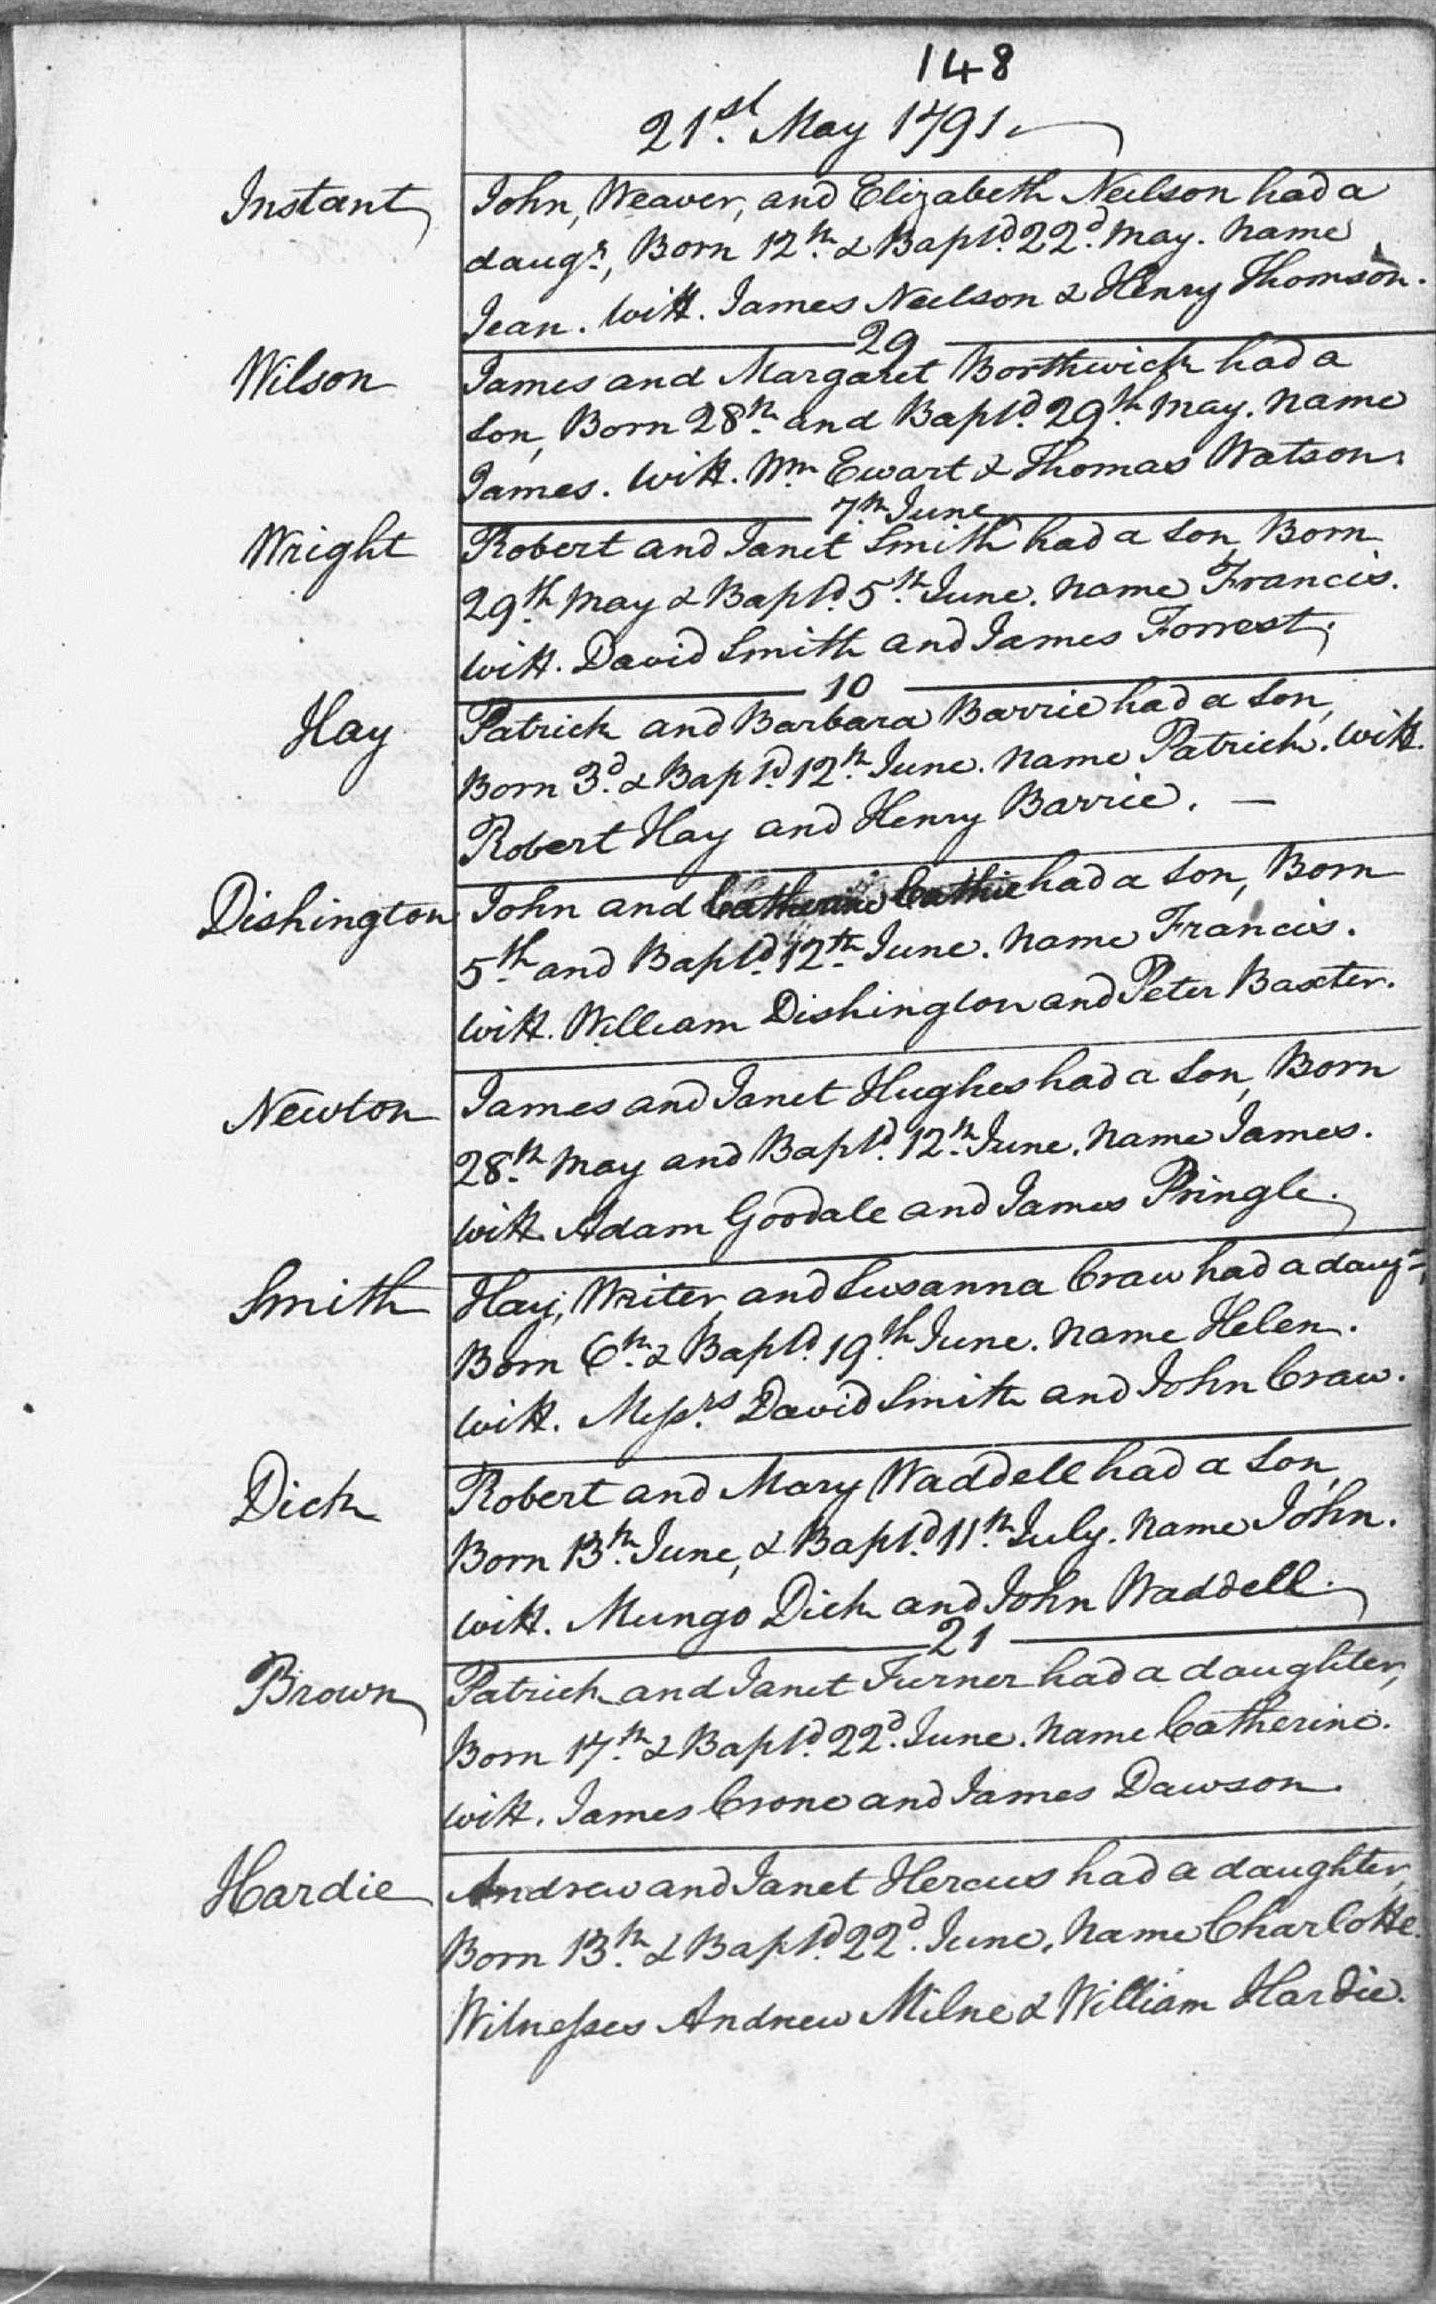 148
21st. May 1791.
Instant
John, Weaver, and Elizabeth Neilson had a
daugr, Born 12th. & Baptd. 22d. May. Name
Jean. Witt. James Neilson & Henry Thomson.
29
Wilson
James and Margaret Borthwick had a
Son, Born 28th. and Baptd. 29th. May. Name
James. Witt. Wm Ewart & Thomas Watson.
7th. June
Wright
Robert and Janet Smith had a Son, Born
29th. May & Baptd. 5th. June. Name Francis.
Witt. David Smith and James Forrest.
10
Hay
Patrick and Barbara Barrie had a Son,
Born 3d. & Baptd. 12th. June. Name Patrick. Witt.
Robert Hay and Henry Barrie. —
Dishington
John and Catherine Cathie had a Son, Born
5th. and Baptd. 12th. June. Name Francis.
Witt. William Dishington and Peter Baxter.
Newton
James and Janet Hughes had a Son, Born
28th. May and Baptd. 12th. June. Name James.
Witt. Adam Goodale and James Pringle.
Smith
Hay, Writer, and Susanna Craw had a daugr.,
Born 6th. & Baptd. 19th. June. Name Helen.
Witt. Messrs. David Smith and John Craw.
Dick
Robert and Mary Waddell had a Son,
Born 13th. June, & Baptd. 11th. July. Name John.
Witt. Mungo Dick and John Waddell.
21
Brown
Patrick and Janet Turner had a daughter,
Born 17th. & Baptd. 22d. June. Name Catherine.
Witt. James Crone and James Dawson.
Hardie
Andrew and Janet Hercus had a daughter,
Born 13th. & Baptd. 22d. June. Name Charlotte.
Witnesses Andrew Milne & William Hardie.